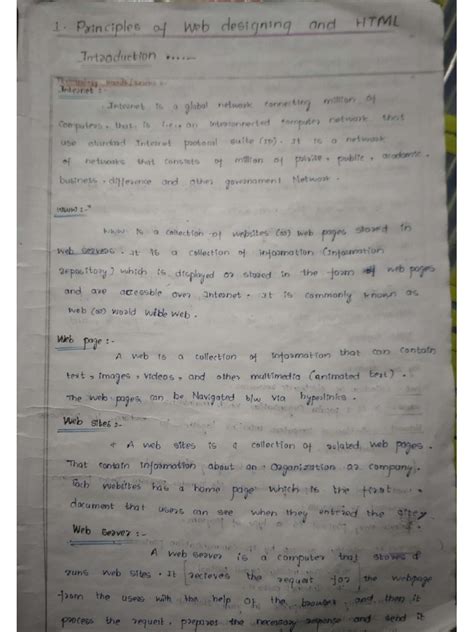 1. Principles of Web designing and HTML
Introduction ......
Internet :-
Internet is a global network connecting million of
computers, that is i.e., an interconnected computer network that
use standard Internet protocal suite (IP). It is a network
of networks that consists of million of private, public, academic,
business, difference and other governament Network.
WWW :-
WWW is a collection of websites (or) web pages stored in
web servers. It is a collection of information (information
repository) which is displayed or stored in the form of web pages
and are accessble over Internet. It is commonly known as
web (or) world wide web.
Web page :-
A web is a collection of information that can contain
text, images, videos, and other multimedia (animated text).
The web pages can be Navigated b/w via hyperlinks.
Web sites :-
A web sites is a collection of related web pages.
That contain information about an organization or company.
Each websites has a home page which is the first
document that users can see when they entered the sites
Web Server :-
A web server is a computer that stores &
runs web sites. It recieves the request for the webpage
from the users with the help of the browser and then it
process the request, prepares the necessary response and send it